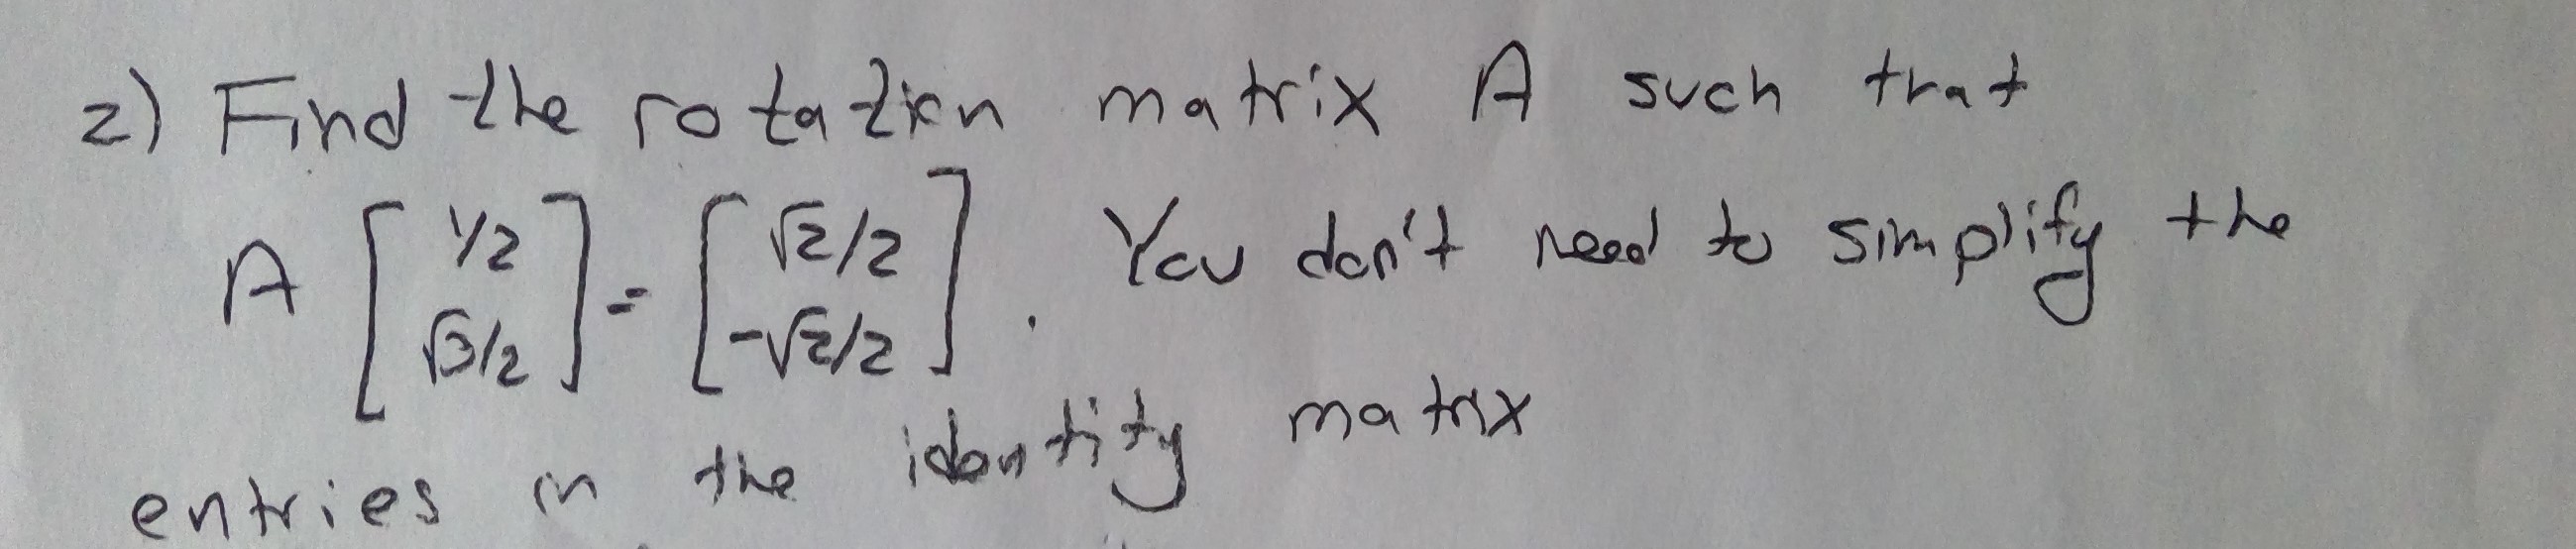 2) Find the rotation matrix A such that
A [ 1/2 √3/2 ] = [ √2/2 -√2/2 ] . You don't need to simplify the
entries in the identity matrix